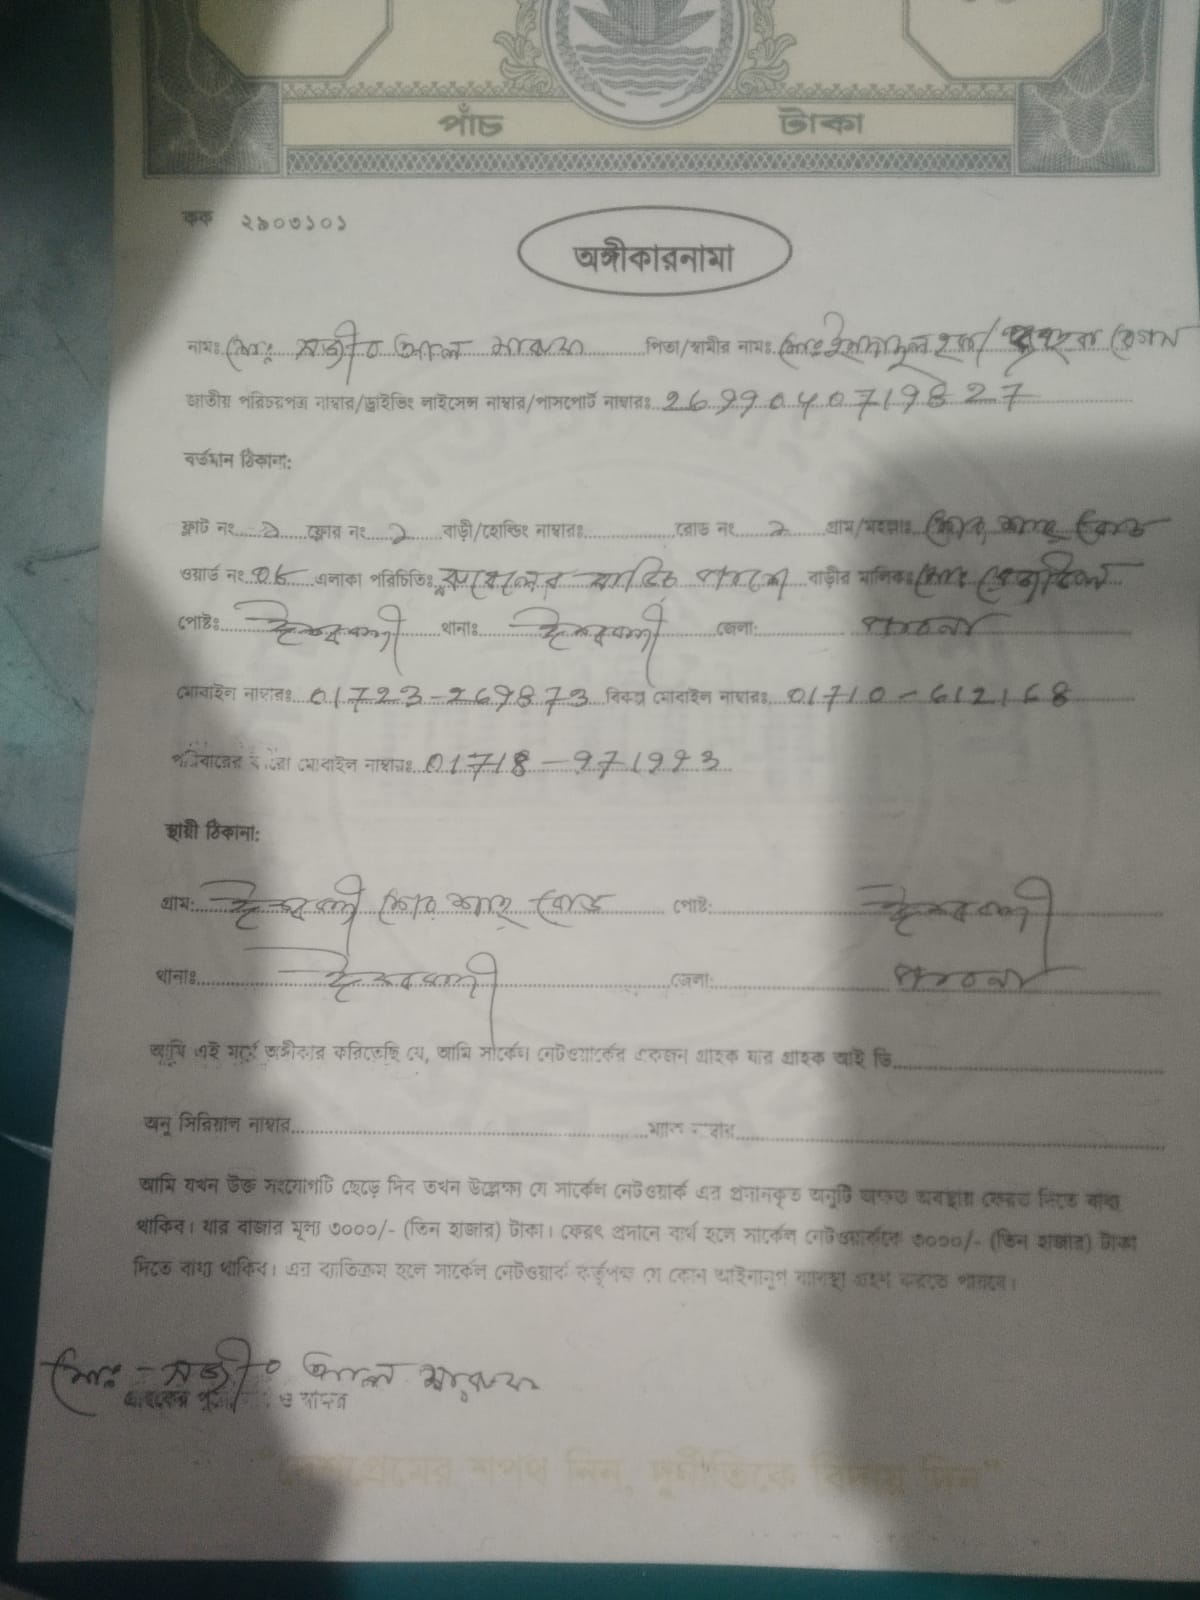 পাঁচ টাকা
কক ২৯০৩১০১
অঙ্গীকারনামা
নামঃ মোঃ সজীব আল মারুফ পিতা/স্বামীর নামঃ মোঃ
জাতীয় পরিচয়পত্র নাম্বার/ড্রাইভিং লাইসেন্স নাম্বার/পাসপোর্ট নাম্বারঃ
বর্তমান ঠিকানা:
ফ্লাট নং ফ্লোর নং বাড়ী/হোল্ডিং নাম্বারঃ রোড নং গ্রাম/মহল্লাঃ শের শাহ্ রোড
ওয়ার্ড নং এলাকা পরিচিতিঃ বাড়ীর মালিকঃ মোঃ
পোষ্টঃ ঈশ্বরদী থানাঃ ঈশ্বরদী জেলা: পাবনা
মোবাইল নাম্বারঃ 01723-269873 বিকল্প মোবাইল নাম্বারঃ 01710-612168
পরিবারের মোবাইল নাম্বারঃ 01718-971993
স্থায়ী ঠিকানা:
গ্রাম: ঈশ্বরদী শের শাহ্ রোড পোষ্ট: ঈশ্বরদী
থানাঃ ঈশ্বরদী জেলা: পাবনা
আমি এই মর্মে অঙ্গীকার করিতেছি যে, আমি সার্কেল নেটওয়ার্কের একজন গ্রাহক যার গ্রাহক আই ডি
অনু সিরিয়াল নাম্বার
আমি যখন উক্ত সংযোগটি ছেড়ে দিব তখন উল্লেক্ষ্য যে সার্কেল নেটওয়ার্ক এর প্রদানকৃত অনুটি অক্ষত অবস্থায় ফেরত দিতে বাধ্য
থাকিব। যার বাজার মূল্য ৩০০০/- (তিন হাজার) টাকা। ফেরৎ প্রদানে ব্যর্থ হলে সার্কেল নেটওয়ার্ককে ৩০০০/- (তিন হাজার) টাকা
দিতে বাধ্য থাকিব। এর ব্যতিক্রম হলে সার্কেল নেটওয়ার্ক কর্তৃপক্ষ যে কোন আইনানুগ ব্যবস্থা গ্রহণ করতে পারবে।
মোঃ - সজীব আল মারুফ
গ্রাহকের ও স্বাক্ষর
"দেশপ্রেমের শপথ নিন, দুর্নীতিকে বিদায় দিন"